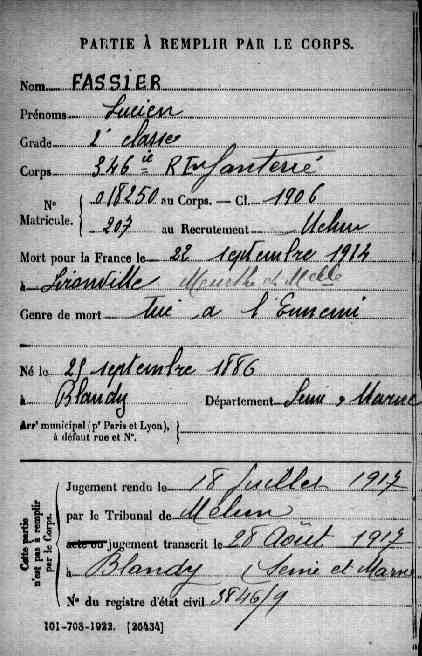 PARTIE À REMPLIR PAR LE CORPS.
Nom FASSIER
Prénoms Lucien
Grade 2e classe
Corps 346ie RInfanterie
N° Matricule. 018250 au Corps. — Cl. 1906
207 au Recrutement Melun
Mort pour la France le 22 septembre 1914
à Lironville Meurthe et Melle
Genre de mort tué à l'Ennemi
Né le 25 septembre 1886
à Blandy Département Seine & Marne
Arrt municipal (pr Paris et Lyon),
à défaut rue et N°.
Cette partie
n'est pas à remplir
par le Corps.
Jugement rendu le 18 Juillet 1917
par le Tribunal de Melun
acte ou jugement transcrit le 28 Août 1917
à Blandy (Seine et Marne
N° du registre d'état civil 3846/9
101-708-1922. [26434]